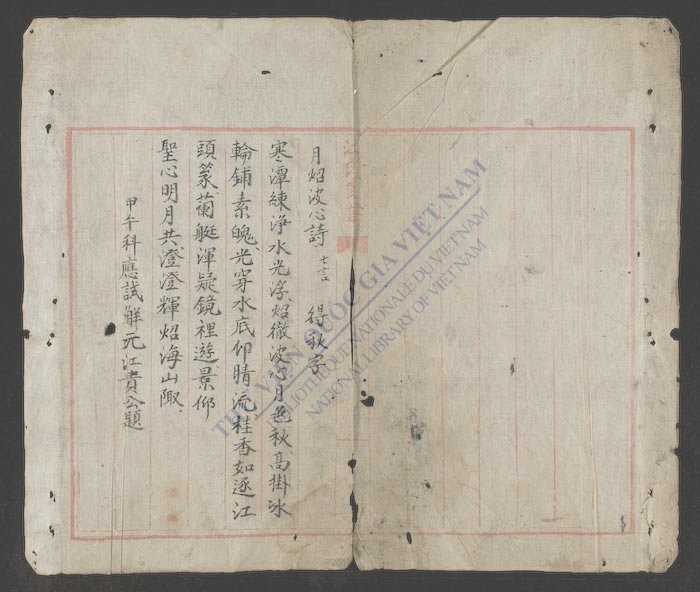 月炤波心詩 七言 得秋字
寒潭練淨水光浮炤徹波心月色秋高掛冰
輪鋪素魄光穿水底仰晴流桂香如逐江
頭篆蘭艇渾疑鏡裡遊景仰
聖心明月共澄澄輝炤海山陬
甲午科應試解元江貴公題
THƯ VIỆN QUỐC GIA VIỆT NAM
BIBLIOTHÈQUE NATIONALE DU VIETNAM
NATIONAL LIBRARY OF VIET NAM